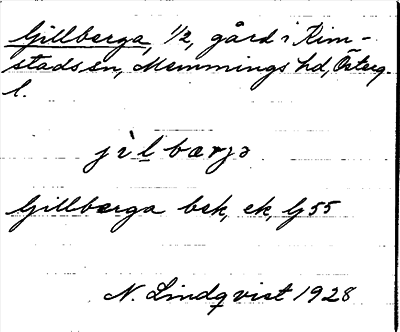 Gillberga, 1/2, gård i Kim-
stads sn, Memmings hd, Österg.
l.
jìl bærjə
Gillberga bsk, ek, G 55
N. Lindqvist 1928